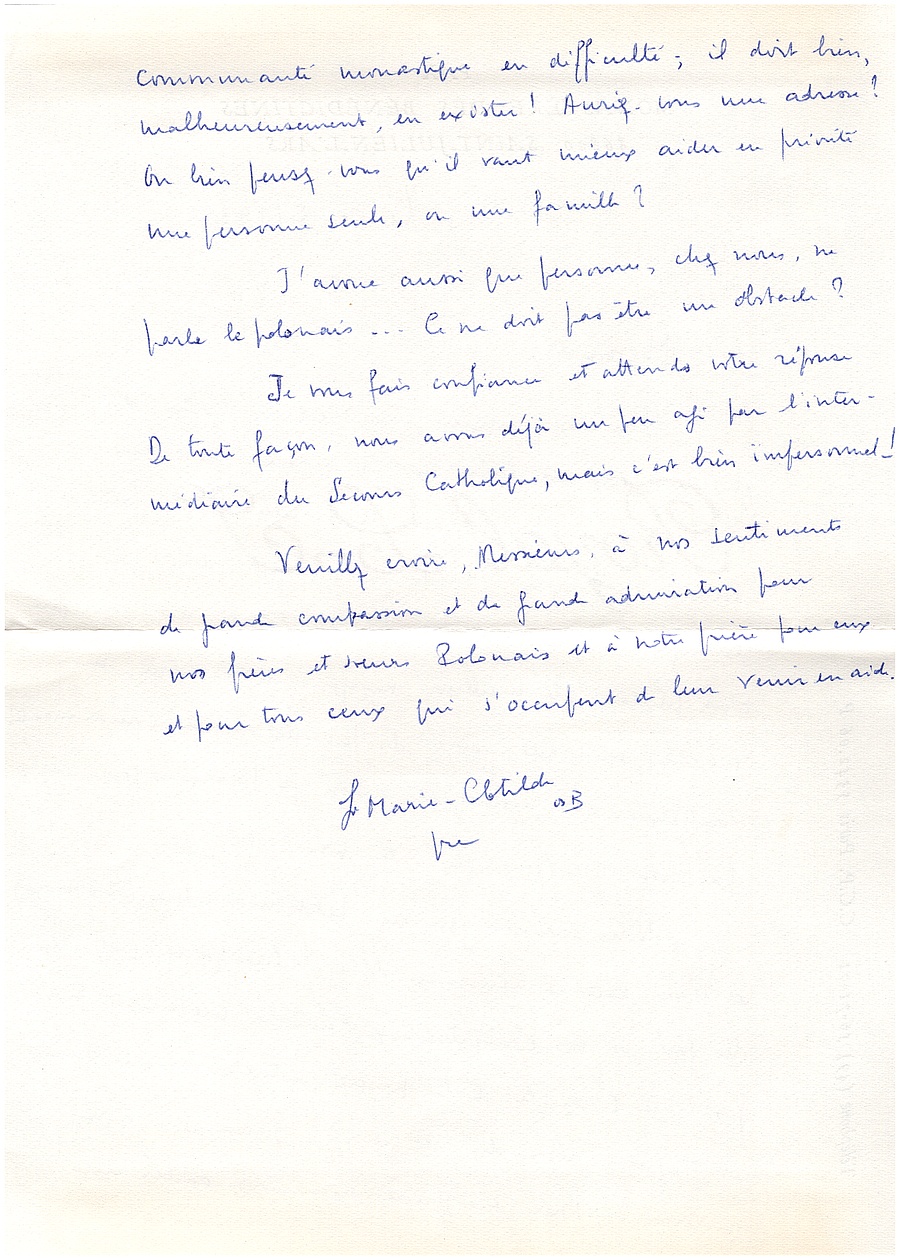 communauté monastique en difficulté ; il doit bien,
malheureusement, en exister ! Auriez-vous une adresse ?
Ou bien pensez-vous qu'il vaut mieux aider en priorité
une personne seule, ou une famille ?
J'avoue aussi que personne, chez nous, ne
parle le polonais ... Ce ne doit pas être un obstacle ?
Je vous fais confiance et attends votre réponse
De toute façon, nous avons déjà un peu agi par l'inter-
médiaire du Secours Catholique, mais c'est bien impersonnel !
Veuillez croire, Messieurs, à nos sentiments
de grande compassion et de grande admiration pour
nos frères et sœurs Polonais et à notre prière pour eux
et pour tous ceux qui s'occupent de leur venir en aide.
Sr Marie-Clotilde
osB
pre